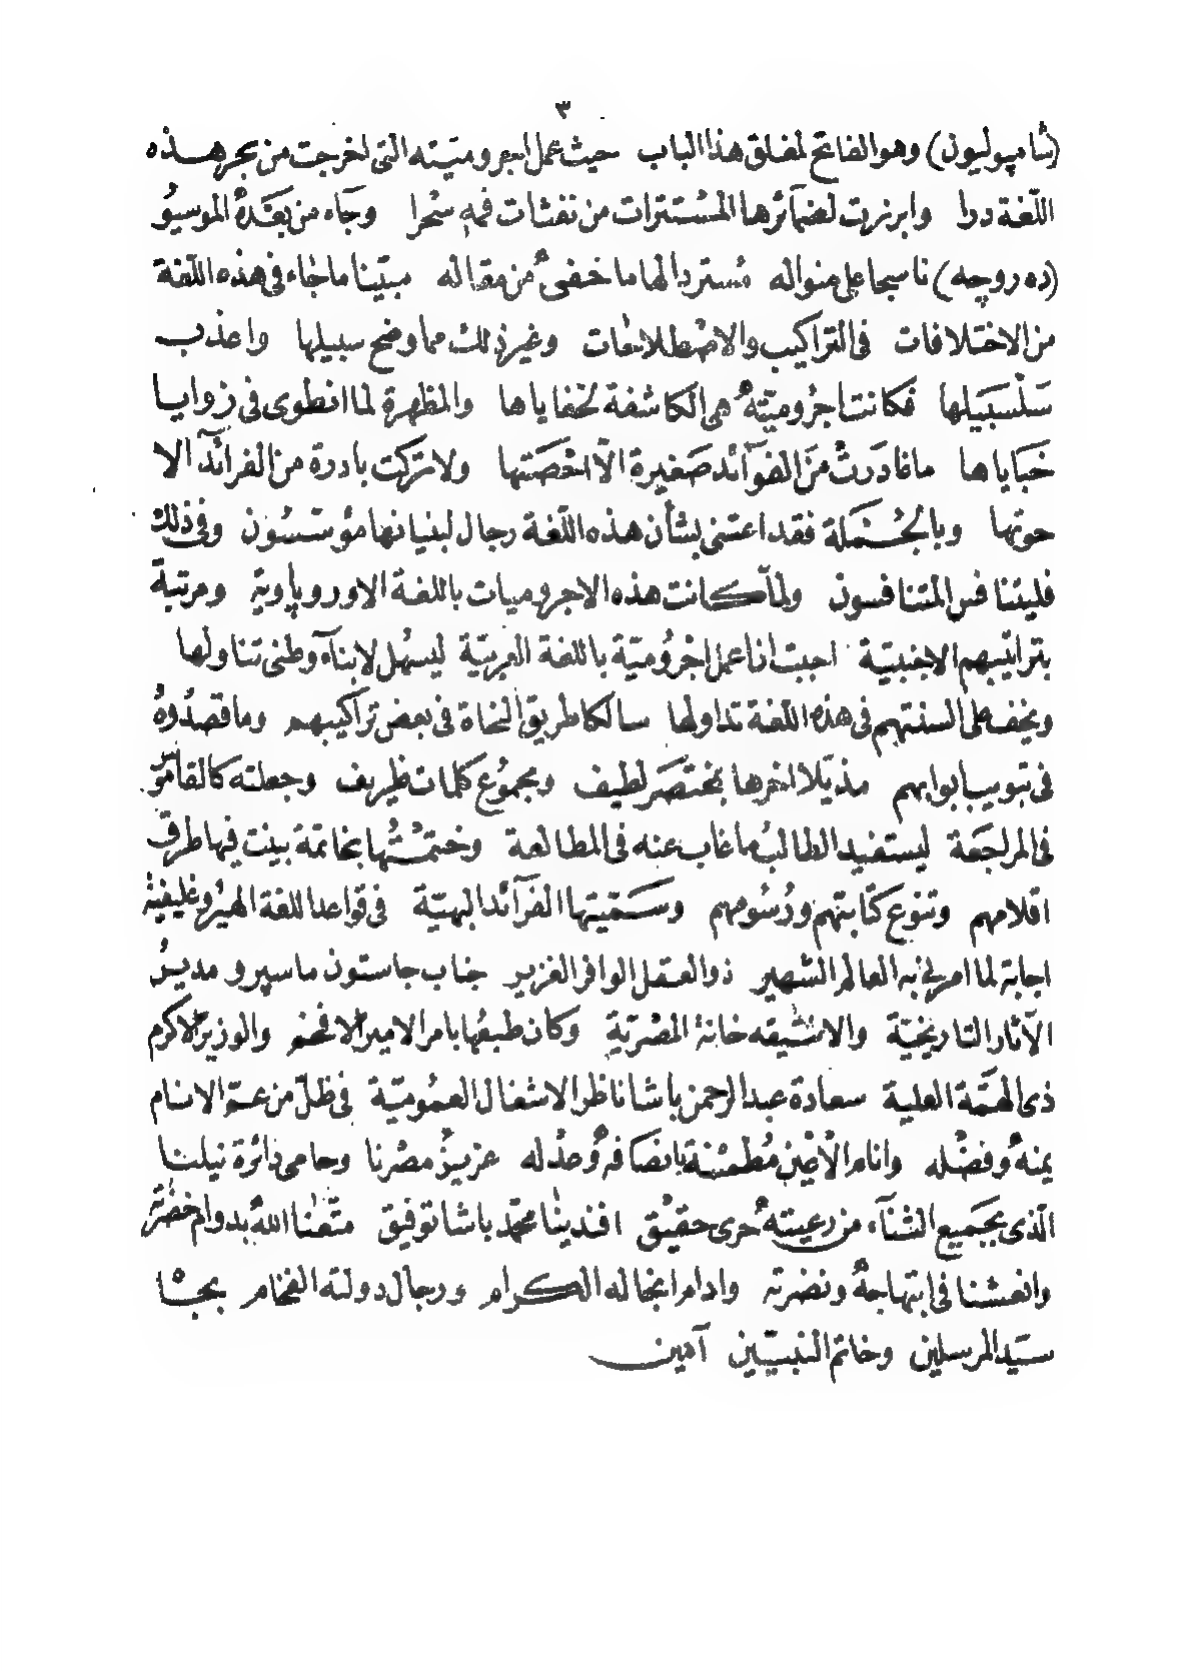 ٣
(شامپوليون) وهو الفاتح لمغلق هذا الباب حيث عمل اجروميّته التى اخرجت من بحر هذه
اللّغة دررا وابرزت لضمآئرها المُسْتترات من نفثات فمهِ سُحرا وجآء من بَعْدهُ الموسيوُ
(ده روچه) ناسجا على منواله مُستردا لها ما خفىَ من مقاله مبيّنا ما جاء فى هذه اللّغة
من الاختلافات فى التراكيب والاصْطلاحات وغير ذلك مما وضح سبيلها واعذب
سَلْسَبيلها فكانت اجرُوميّتهُ هى الكاشفة لخفاياها والمظهرة لما انطوى فى زوايا
خَباياها ما غادَرتْ مَن الفوآئد صَغيرة الّا احْصَتها ولا تركت بادرة من الفرائد الا
حوتها وبالجُمْلة فقد اعتنى بشأن هذه اللّغة رجال لبنيانها مؤسّسُون وفى ذلك
فليتنافس المتنافسون ولمّا كانت هذه الاجروميات باللغة الاوروپاويّة ومرتبة
بتراتيبهم الاجنبيّة احببت انا عمل اجْرُوميّة باللغة العربيّة ليسهُل لابنآء وطنى تناولها
ويخف على السنتهم فى هذه اللّغة تداولها سالكا طريق النحاة فى بعض تراكيبهم وما قصدُوهُ
فى تبويب ابوابهم مذيّلا اخرها بمختصَر لطيف ومجمُوع كلمات ظريف وجعلته كالقاموس
فى المراجعَة ليستفيد الطالبُ ما غاب عنه فى المطالعة وختمْتُها بخاتمة بينت فيها طرق
اقلامهم وتنوع كتابتهم ورُسُومهم وسَمّيتها الفرآئد البهيّة فى قواعد اللغة الهيرُوغليفيّة
اجابة لما امرنى به العالم الشّهير ذو العقل الوافر الغزير جناب جاستون ماسپرو مديرُ
الآثار التاريخيّة والانتيقه خانهٔ المصْريّة وكان طبعُها بامر الامير الافخم والوزير الاكرم
ذى الهمّة العلية سعادة عبد الرحمن باشا ناظر الاشغال العمُوميّة فى ظلّ من عمّ الانام
يمنهُ وفضْله وانام الْانام مُطمئنة بانصَافهُ وعدْله عزيزُ مصْرنا وحامى دائرة نيلنا
الّذى بجميع الثنآء من رعيتهُ حرى حقيْق افندينا محمّد باشا توفيق متّعنا اللهُ بدوام حضرته
وانعشنا فى ابتهاجهُ ونضرته وادام انجاله الكرام ورجال دولته الفخام بجاه
سيّد المرسلين وخاتم النبيّين آمين